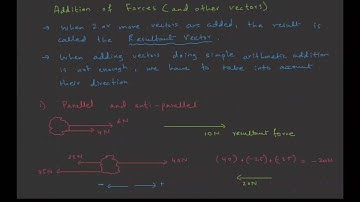 Addition of Forces (and other vectors)
→ When 2 or more vectors are added, the result is
called the Resultant Vector.
→ When adding vectors doing simple arithmetic addition
is not enough, we have to take into account
their direction.
i) Parallel and anti-parallel
6N
4N
10N resultant force
40N
25N
(40) + (-25) + (-35) = -20N
20N
- +